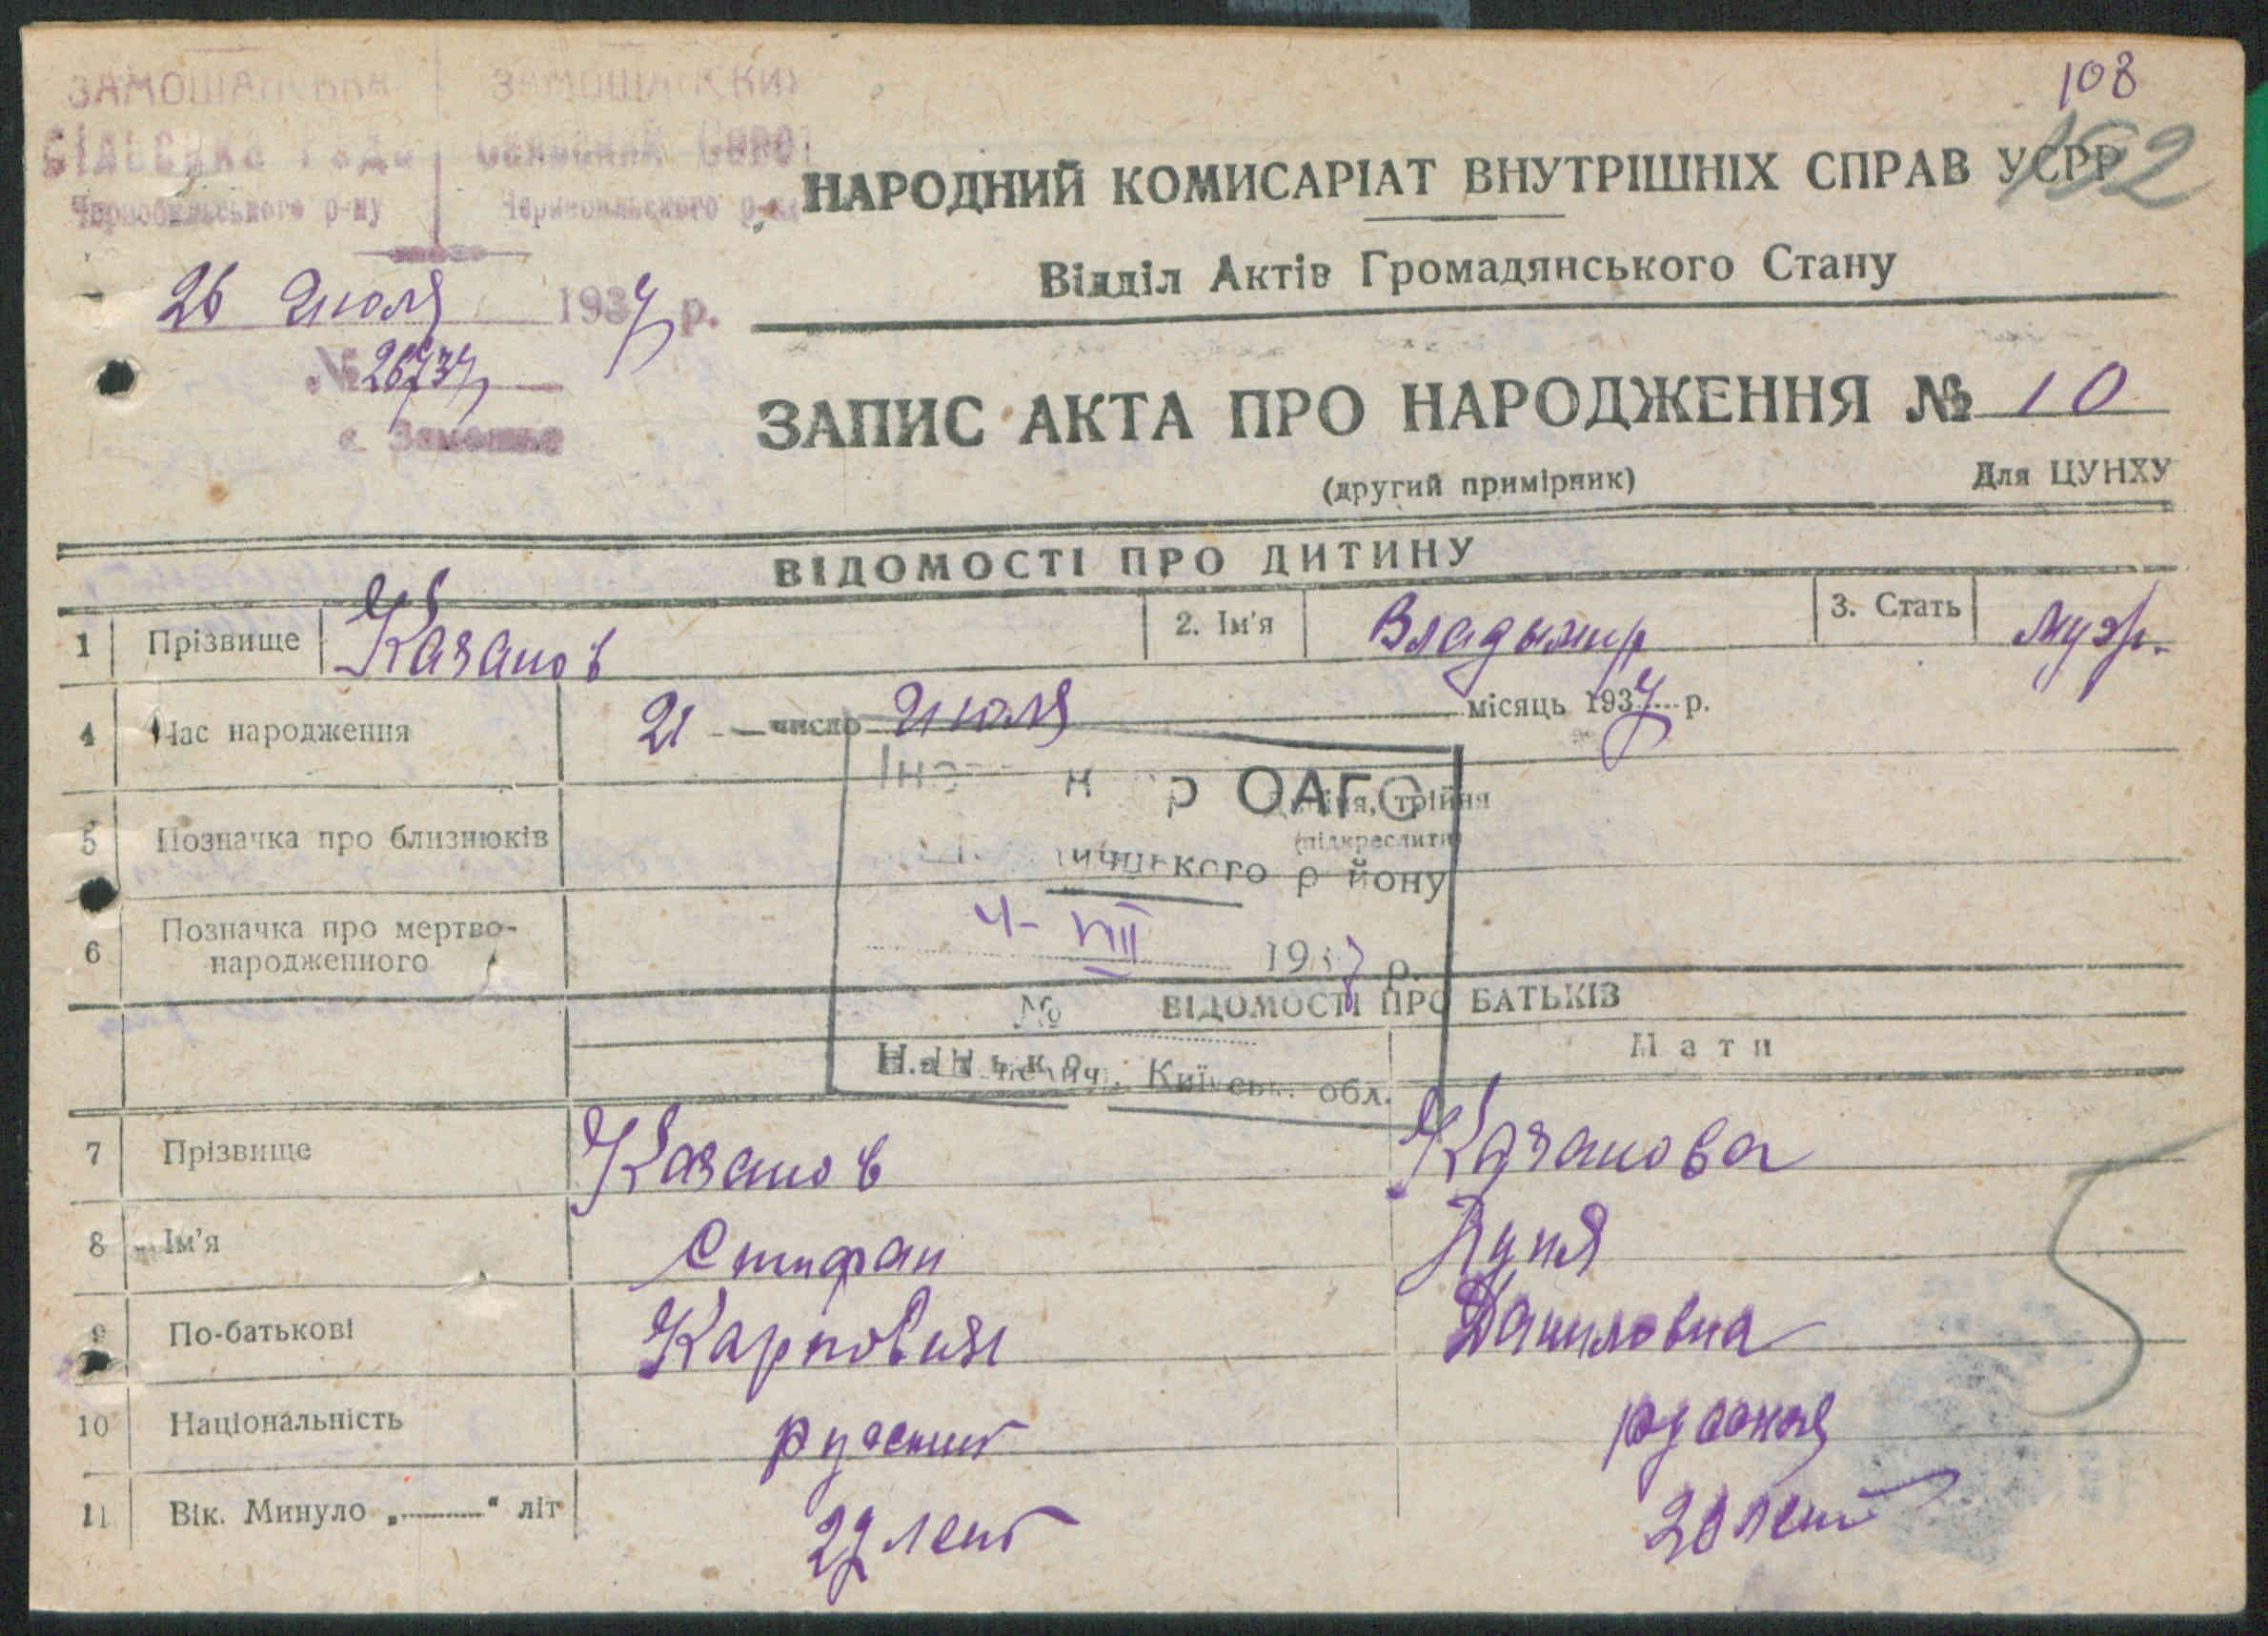 108
152
ЗАМОШАНСЬКА
СІЛЬСЬКА Рада
Чорнобильського р-ну
Чернобыльского р-на
26 Июля 1937 р.
№ 26/737
с. Замошня
НАРОДНИЙ КОМИСАРІАТ ВНУТРІШНІХ СПРАВ УСРР
Відділ Актів Громадянського Стану
ЗАПИС АКТА ПРО НАРОДЖЕННЯ № 10
(другий примірник) Для ЦУНХУ
ВІДОМОСТІ ПРО ДИТИНУ
1 Прізвище Казанов 2. Ім'я Владымир 3. Стать муж.
4 Час народження 21 число Июля місяць 1937 р.
ОАГС
5 Позначка про близнюків двійня, трійня
(підкреслити)
району
6 Позначка про мертво-
народженного
4- VIII 1937 р.
ВІДОМОСТІ ПРО БАТЬКІВ
№
Батько Мати
Київськ. обл.
7 Прізвище Казанов Казанова
8 Ім'я Стифан Луня
9 По-батькові Карпович Даниловна
10 Національність руский руская
11 Вік. Минуло „ “ літ 22 лет 20 лет